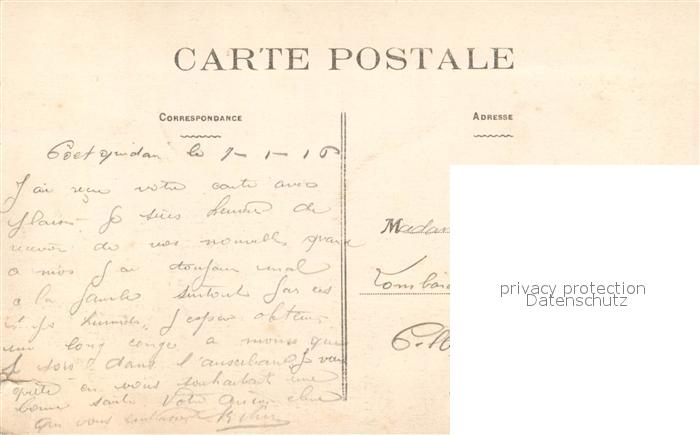 CARTE POSTALE
CORRESPONDANCE
ADRESSE
Coetquidan le 9-1-16
J'ai reçu votre carte avec
plaisir. Je suis heureux de
recevoir de vos nouvelles quand
a moi J'ai toujour mal
a la Jambe surtout par ces
Humides, J'espere obtenir
un long congé a moins que
Je sois dans l'
quitte en vous souhaitant une
bonne santé. Votre
qui vous embrasse
Madam
Lombard
privacy protection
Datenschutz